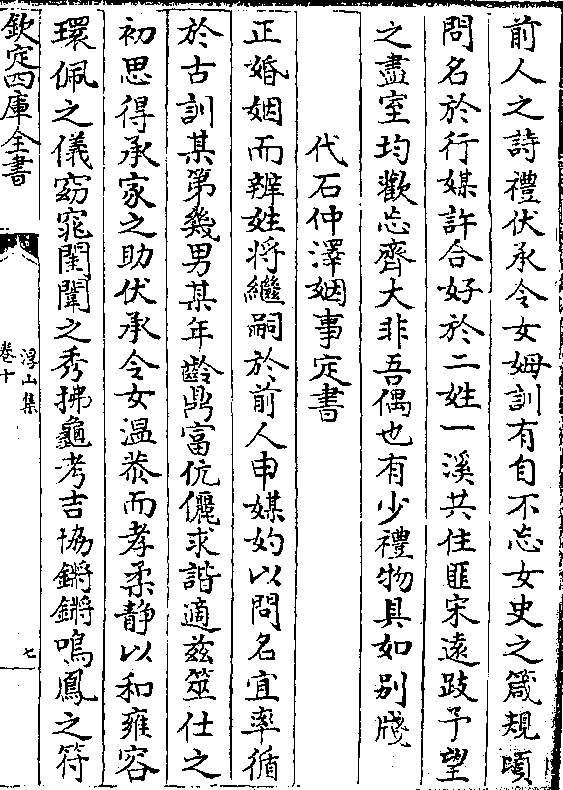 前人之詩禮伏承令女姆訓有自不忘女史之箴規頃
問名於行媒許合好於二姓一溪共住匪宋遠跂予望
之盡室均歡忘齊大非吾偶也有少禮物具如别牋
代石仲澤姻事定書
正婚姻而辨姓將繼嗣於前人申媒妁以問名宜率循
於古訓某第幾男某年齡鼎富伉儷求諧適兹筮仕之
初思得承家之助伏承令女温恭而孝柔静以和雍容
環佩之儀窈窕閨闈之秀拂龜考吉協鏘鏘鳴鳳之符
欽定四庫全書
浮山集
卷十
七